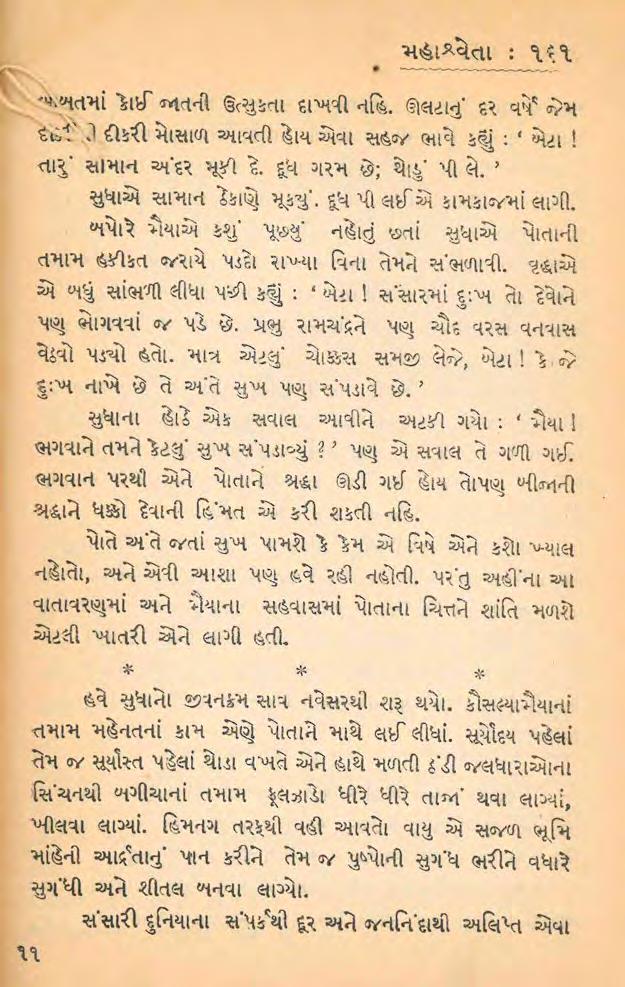 મહાશ્વેતા : ૧૬૧
બાબતમાં કોઈ જાતની ઉત્સુકતા દાખવી નહિ. ઊલટાનું દર વર્ષે જેમ
દીકરી મોસાળ આવતી હોય એવા સહજ ભાવે કહ્યું : ‘ બેટા !
તારું સામાન અંદર મૂકી દે. દૂધ ગરમ છે; થોડું પી લે. ’
સુધાએ સામાન ઠેકાણે મૂક્યું. દૂધ પી લઈ એ કામકાજમાં લાગી.
બપોરે મૈયાએ કશું પૂછ્યું નહોતું છતાં સુધાએ પોતાની
તમામ હકીકત જરાયે પડદો રાખ્યા વિના તેમને સંભળાવી. વૃદ્ધાએ
એ બધું સાંભળી લીધા પછી કહ્યું : ‘ બેટા ! સંસારમાં દુઃખ તો દેવોને
પણ ભોગવવાં જ પડે છે. પ્રભુ રામચંદ્રને પણ ચૌદ વરસ વનવાસ
વેઠવો પડ્યો હતો. માત્ર એટલું ચોક્કસ સમજી લેજે, બેટા ! કે જે
દુઃખ નાખે છે તે અંતે સુખ પણ સંપડાવે છે. ’
સુધાના હોઠે એક સવાલ આવીને અટકી ગયો : ‘ મૈયા !
ભગવાને તમને કેટલું સુખ સંપડાવ્યું ? ’ પણ એ સવાલ તે ગળી ગઈ.
ભગવાન પરથી એને પોતાને શ્રદ્ધા ઊડી ગઈ હોય તોપણ બીજાની
શ્રદ્ધાને ધક્કો દેવાની હિંમત એ કરી શકતી નહિ.
પોતે અંતે જતાં સુખ પામશે કે કેમ એ વિષે એને કશો ખ્યાલ
નહોતો, અને એવી આશા પણ હવે રહી નહોતી. પરંતુ અહીંના આ
વાતાવરણમાં અને મૈયાના સહવાસમાં પોતાના ચિત્તને શાંતિ મળશે
એટલી ખાતરી એને લાગી હતી.
* * *
હવે સુધાનો જીવનક્રમ સાવ નવેસરથી શરૂ થયો. કૌસલ્યામૈયાનાં
તમામ મહેનતનાં કામ એણે પોતાને માથે લઈ લીધાં. સૂર્યોદય પહેલાં
તેમ જ સૂર્યાસ્ત પહેલાં થોડા વખતે એને હાથે મળતી ઠંડી જલધારાઓના
સિંચનથી બગીચાનાં તમામ ફૂલઝાડો ધીરે ધીરે તાજાં થવા લાગ્યાં,
ખીલવા લાગ્યાં. હિમનગ તરફથી વહી આવતો વાયુ એ સજળ ભૂમિ
માંહેની આર્દ્રતાનું પાન કરીને તેમ જ પુષ્પોની સુગંધ ભરીને વધારે
સુગંધી અને શીતલ બનવા લાગ્યો.
સંસારી દુનિયાના સંપર્કથી દૂર અને જનનિંદાથી અલિપ્ત એવા
૧૧